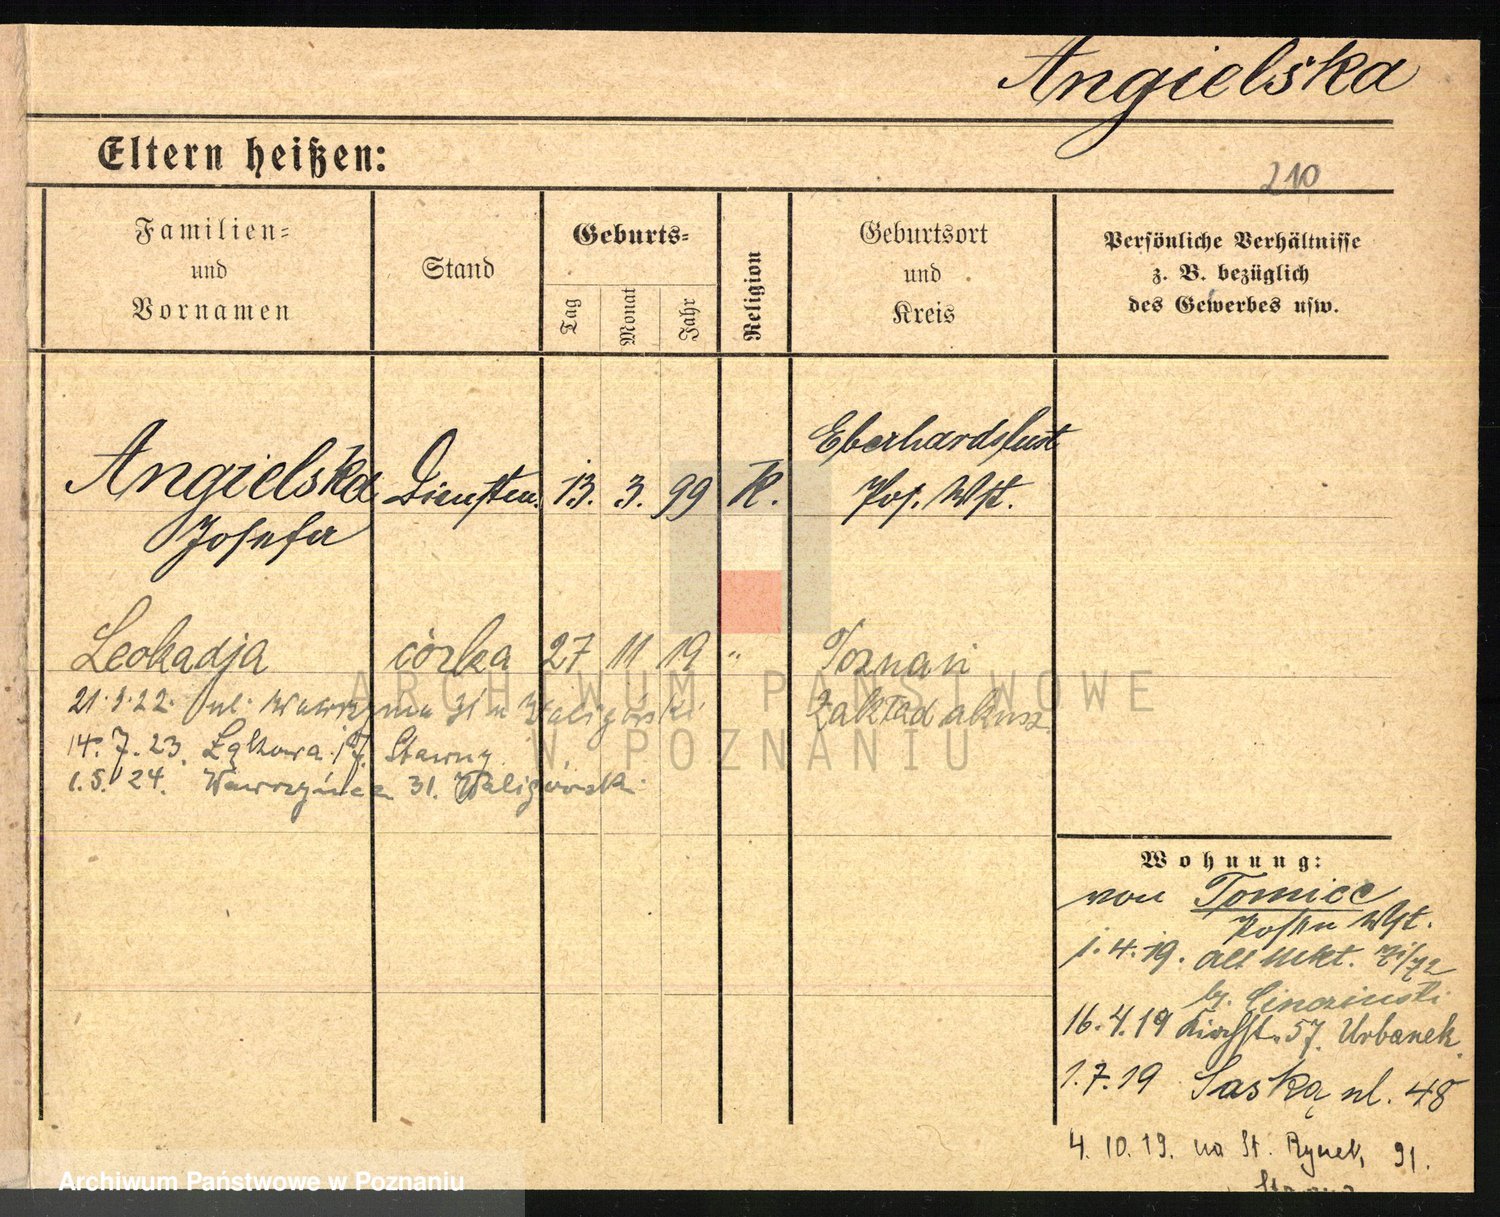 Angielska
Eltern heißen:
210
Familien=
und
Vornamen
Stand
Geburts=
Tag
Monat
Jahr
Religion
Geburtsort
und
Kreis
Persönliche Verhältnisse
z. B. bezüglich
des Gewerbes usw.
Angielska Dienstm. 13. 3. 99 K. Eberhardslust
Josefa Pos. Wst.
Leokadja córka 27 11 19 " Poznań
Zakład akusz.
21.3.22. ul. Wawrzyńca 31 u Waligórski
14.7.23. Łąkowa 17. Stawny
1.5.24. Wawrzyńca 31. Waligórski
Wohnung:
von Tomice
Posen Wst.
1.4.19. Alt Mkt. 71/72
b/.
16.4.19 Kirchst. 57. Urbanek.
1.7.19 Saską ul. 48
4.10.19. na St. Rynek, 91.
ARCHIWUM PAŃSTWOWE
W POZNANIU
Archiwum Państwowe w Poznaniu